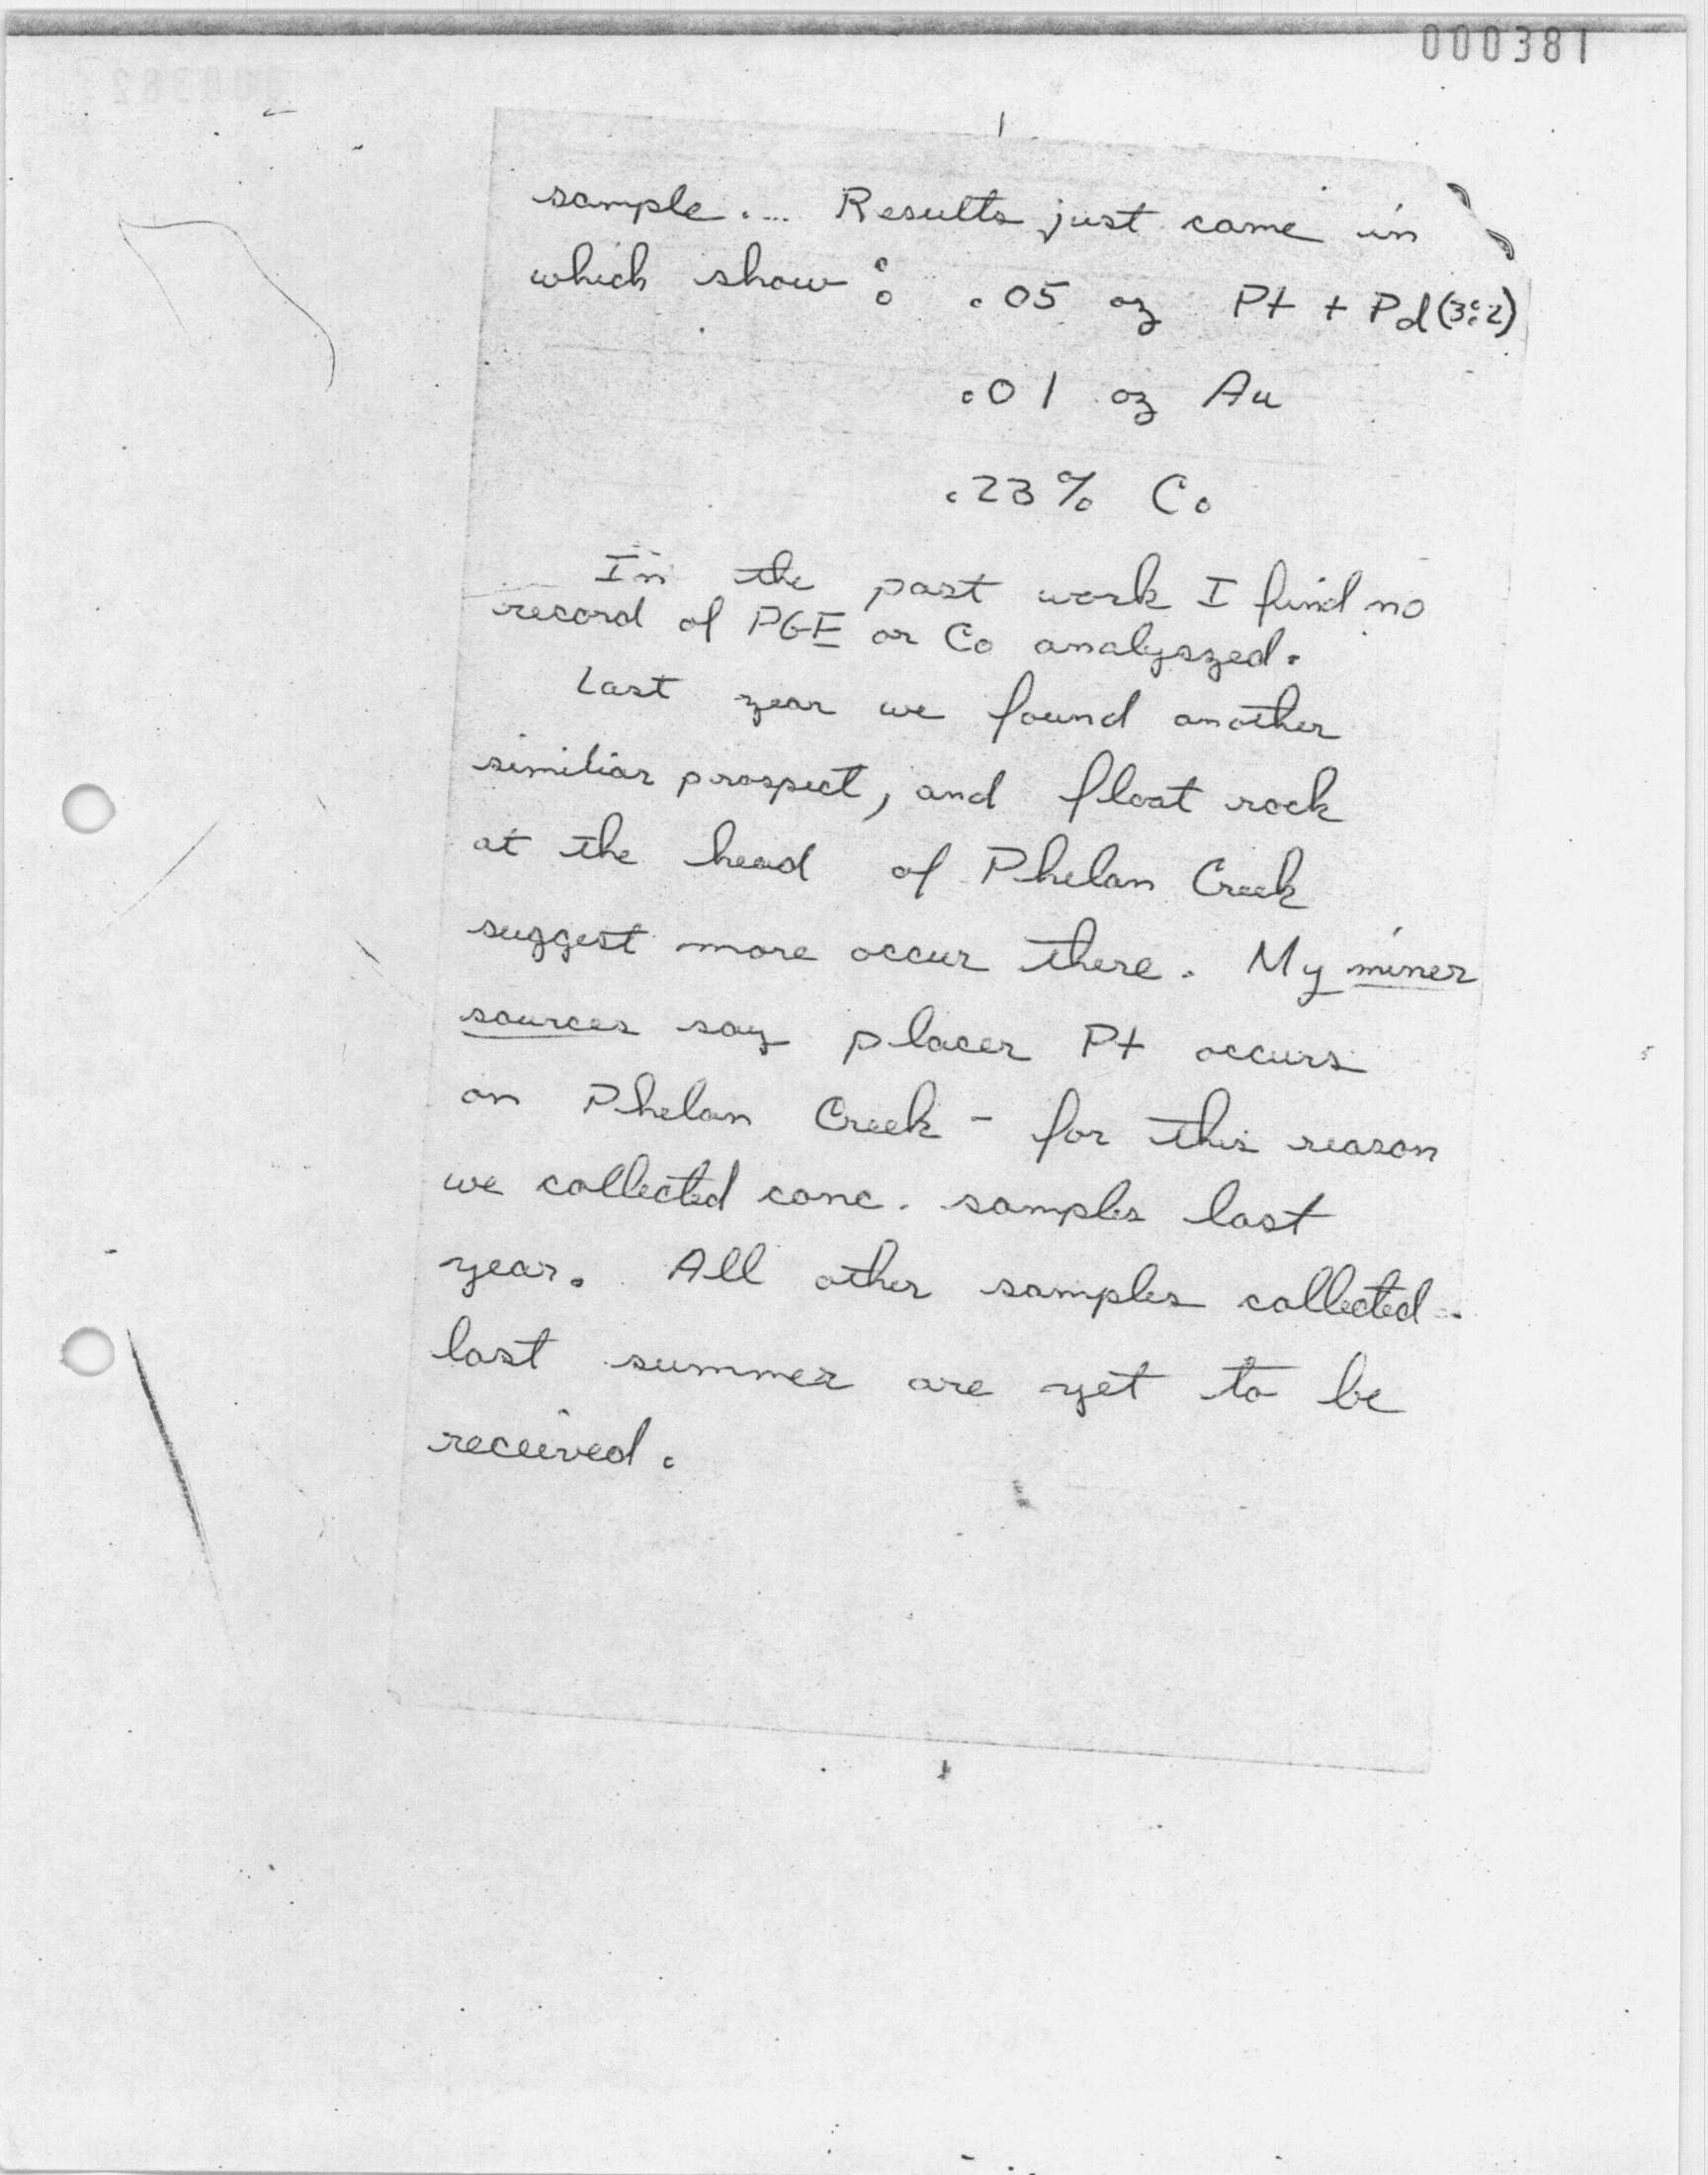 000381
sample.... Results just came in
which show: .05 oz Pt + Pd (3:2)
.01 oz Au
.23% Co
In the past work I find no
record of PGE or Co analyszed.
Last year we found another
similiar prospect, and float rock
at the head of Phelan Creek
suggest more occur there. My miner
sources say placer Pt occurs
on Phelan Creek - for this reason
we collected conc. samples last
year. All other samples collected
last summer are yet to be
received.